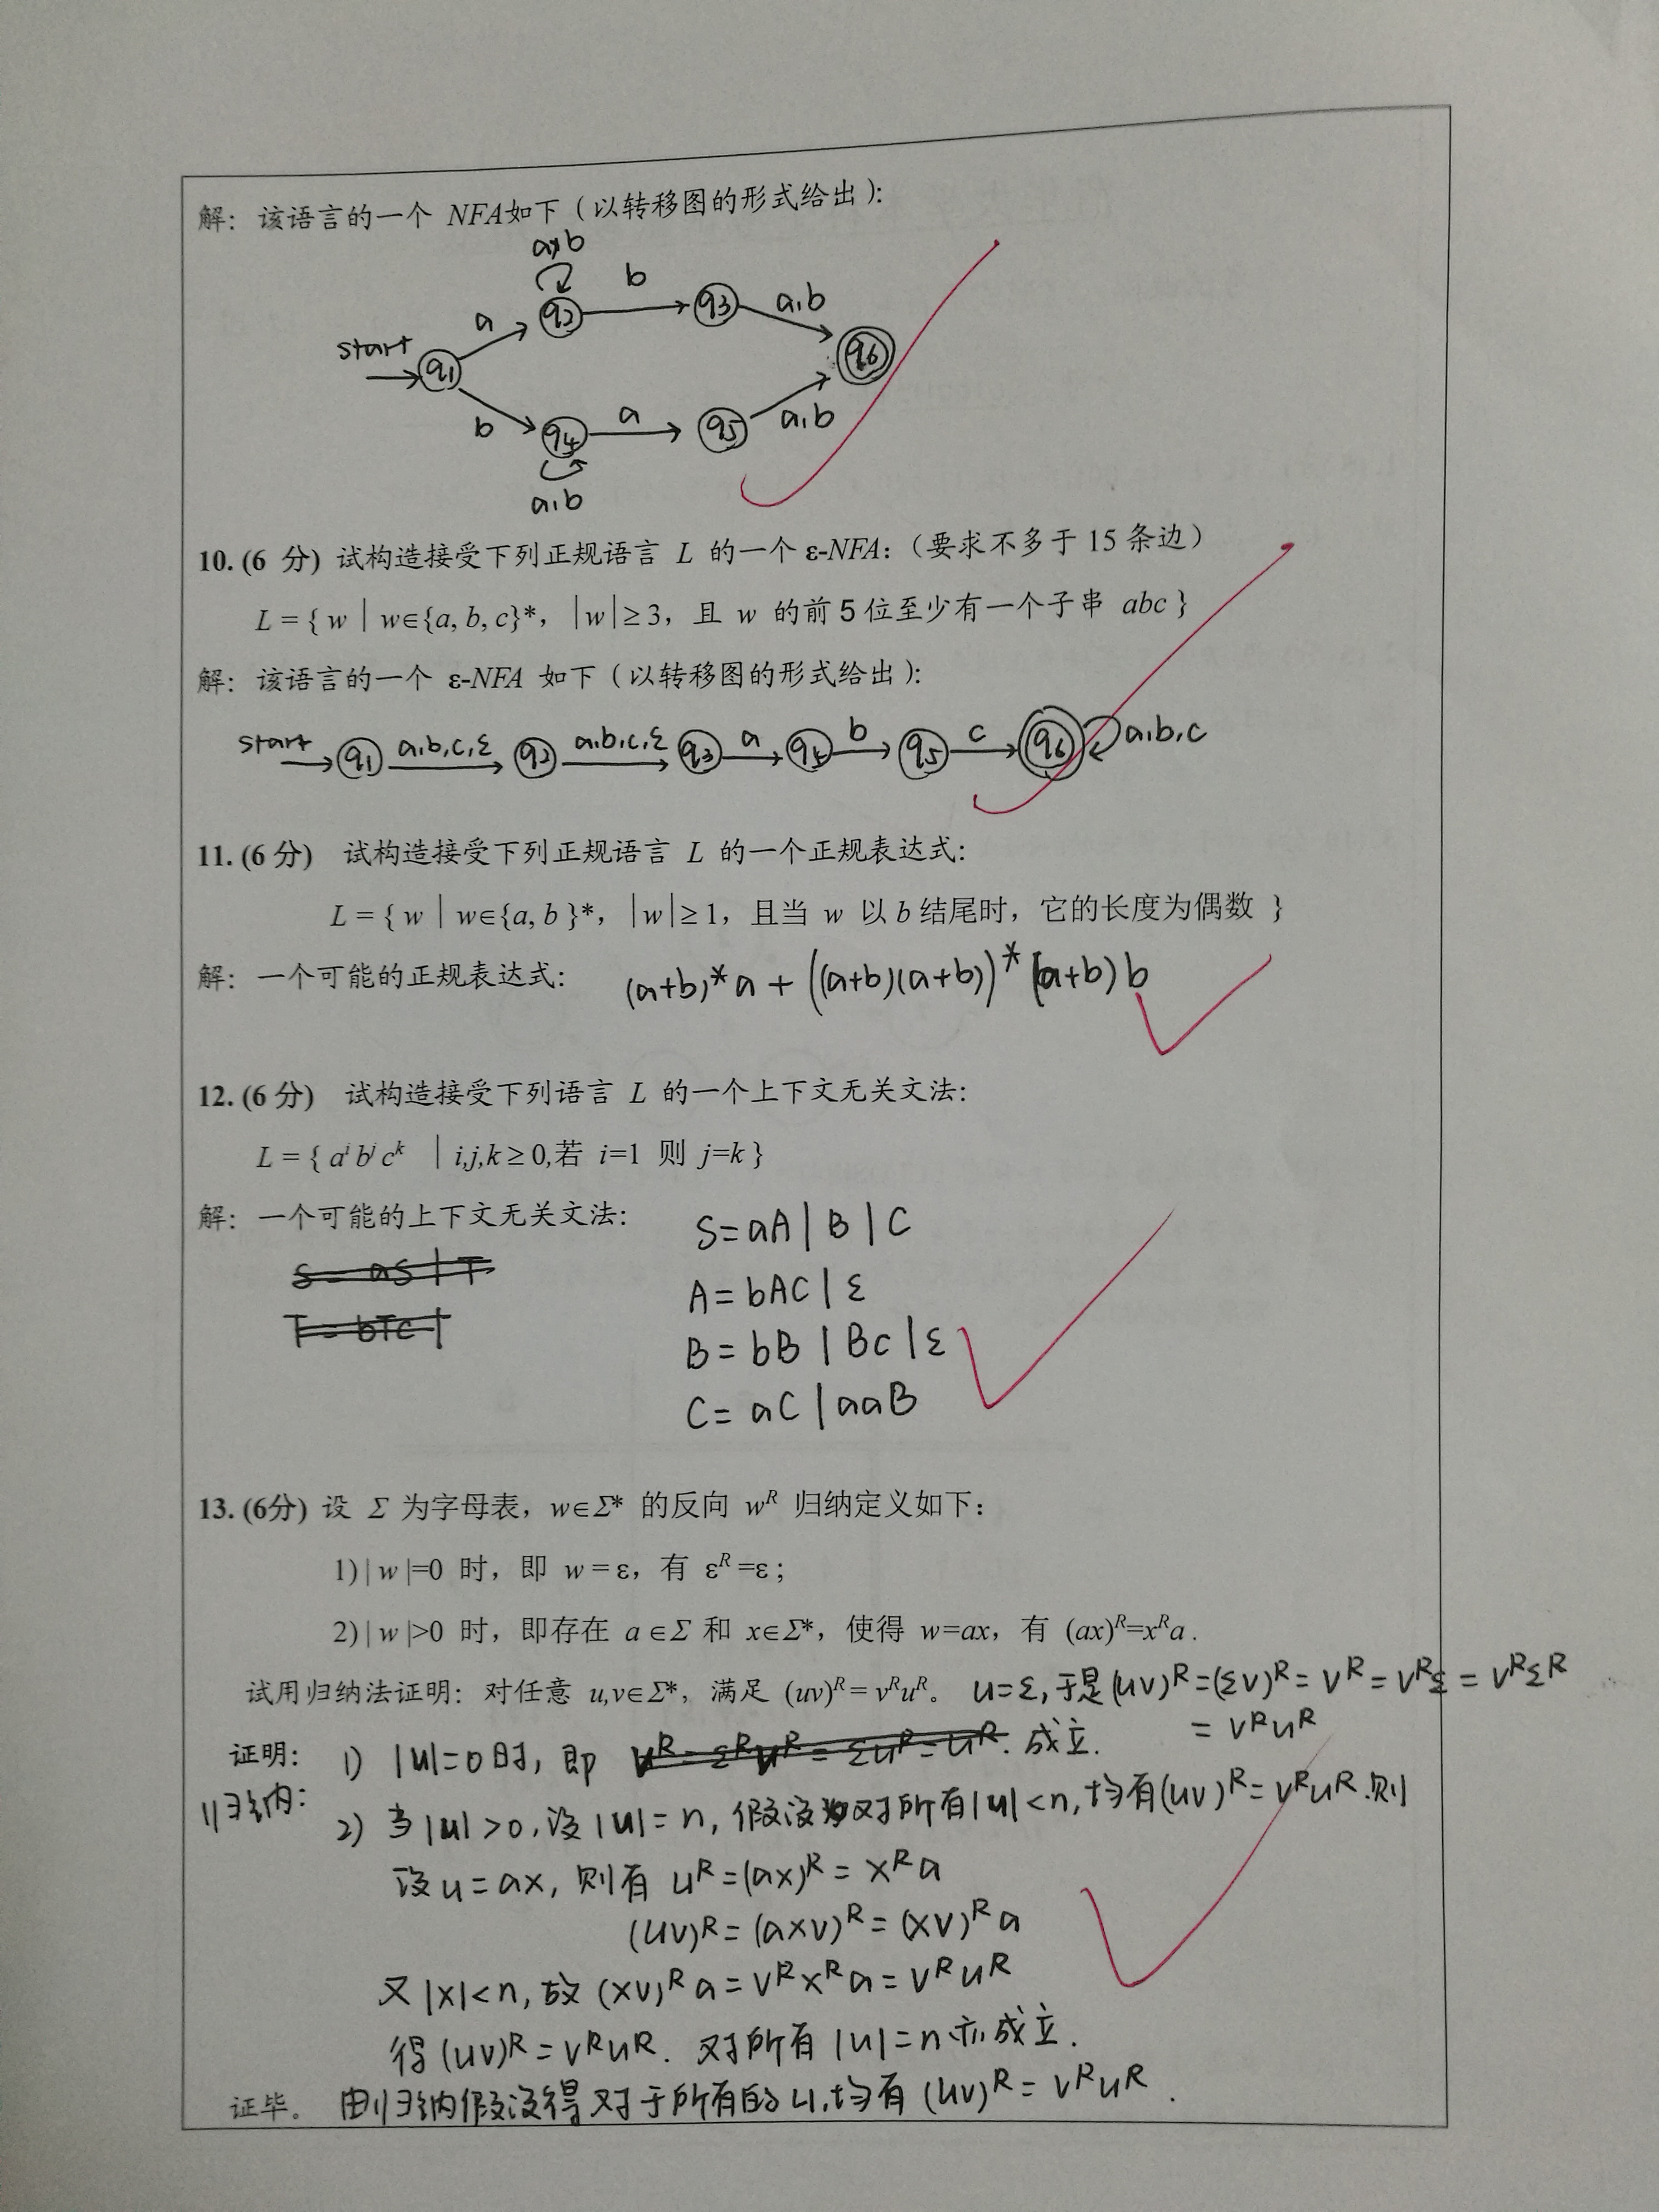 解: 该语言的一个 NFA如下 ( 以转移图的形式给出 ):
a,b
b
a
q2
q3
a,b
start
q1
q6
b
q4
a
q5
a,b
a,b
10. (6 分) 试构造接受下列正规语言 L 的一个 ε-NFA: (要求不多于 15 条边)
L = { w | w∈{a, b, c}*, |w| ≥ 3, 且 w 的前 5 位至少有一个子串 abc }
解: 该语言的一个 ε-NFA 如下 ( 以转移图的形式给出 ):
start q1 a,b,c,ε q2 a,b,c,ε q3 a q4 b q5 c q6 a,b,c
11. (6 分) 试构造接受下列正规语言 L 的一个正规表达式:
L = { w | w∈{a, b }*, |w| ≥ 1, 且当 w 以 b 结尾时, 它的长度为偶数 }
解: 一个可能的正规表达式: (a+b)*a + ((a+b)(a+b))*(a+b)b
12. (6 分) 试构造接受下列语言 L 的一个上下文无关文法:
L = { aⁱ bʲ cᵏ | i,j,k ≥ 0,若 i=1 则 j=k }
解: 一个可能的上下文无关文法: S=aA | B | C
S= aS | T
A= bAC | ε
T= bTc |
B= bB | Bc | ε
C= aC | aaB
13. (6分) 设 Σ 为字母表, w∈Σ* 的反向 wᴿ 归纳定义如下:
1) | w |=0 时, 即 w = ε, 有 εᴿ =ε ;
2) | w |>0 时, 即存在 a ∈Σ 和 x∈Σ*, 使得 w=ax, 有 (ax)ᴿ=xᴿa .
试用归纳法证明: 对任意 u,v∈Σ*, 满足 (uv)ᴿ = vᴿuᴿ。 u=ε, 于是(uv)ᴿ=(εv)ᴿ= vᴿ = vᴿε = vᴿεᴿ
= vᴿuᴿ
证明: 1) |u|=0时, 即 成立.
归纳: 2) 当|u|>0, 设|u|=n, 假设对所有|u|<n, 均有(uv)ᴿ= vᴿuᴿ. 则
设u=ax, 则有 uᴿ=(ax)ᴿ= xᴿa
(uv)ᴿ= (axv)ᴿ= (xv)ᴿa
又|x|<n, 故 (xv)ᴿa = vᴿxᴿa = vᴿuᴿ
得(uv)ᴿ= vᴿuᴿ. 对所有|u|=n 亦成立.
证毕。 由归纳假设得对于所有的u, 均有 (uv)ᴿ= vᴿuᴿ.